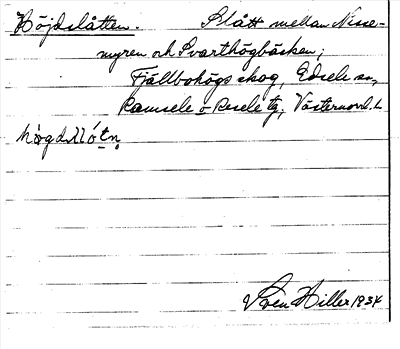 Höjdslåtten. Slått mellan Nisse-
myren och Svarthögbäcken;
Fjällbohögs skog, Edsele sn,
Ramsele o Resele tg, Västernorrl. L.
Sven Hiller 1934